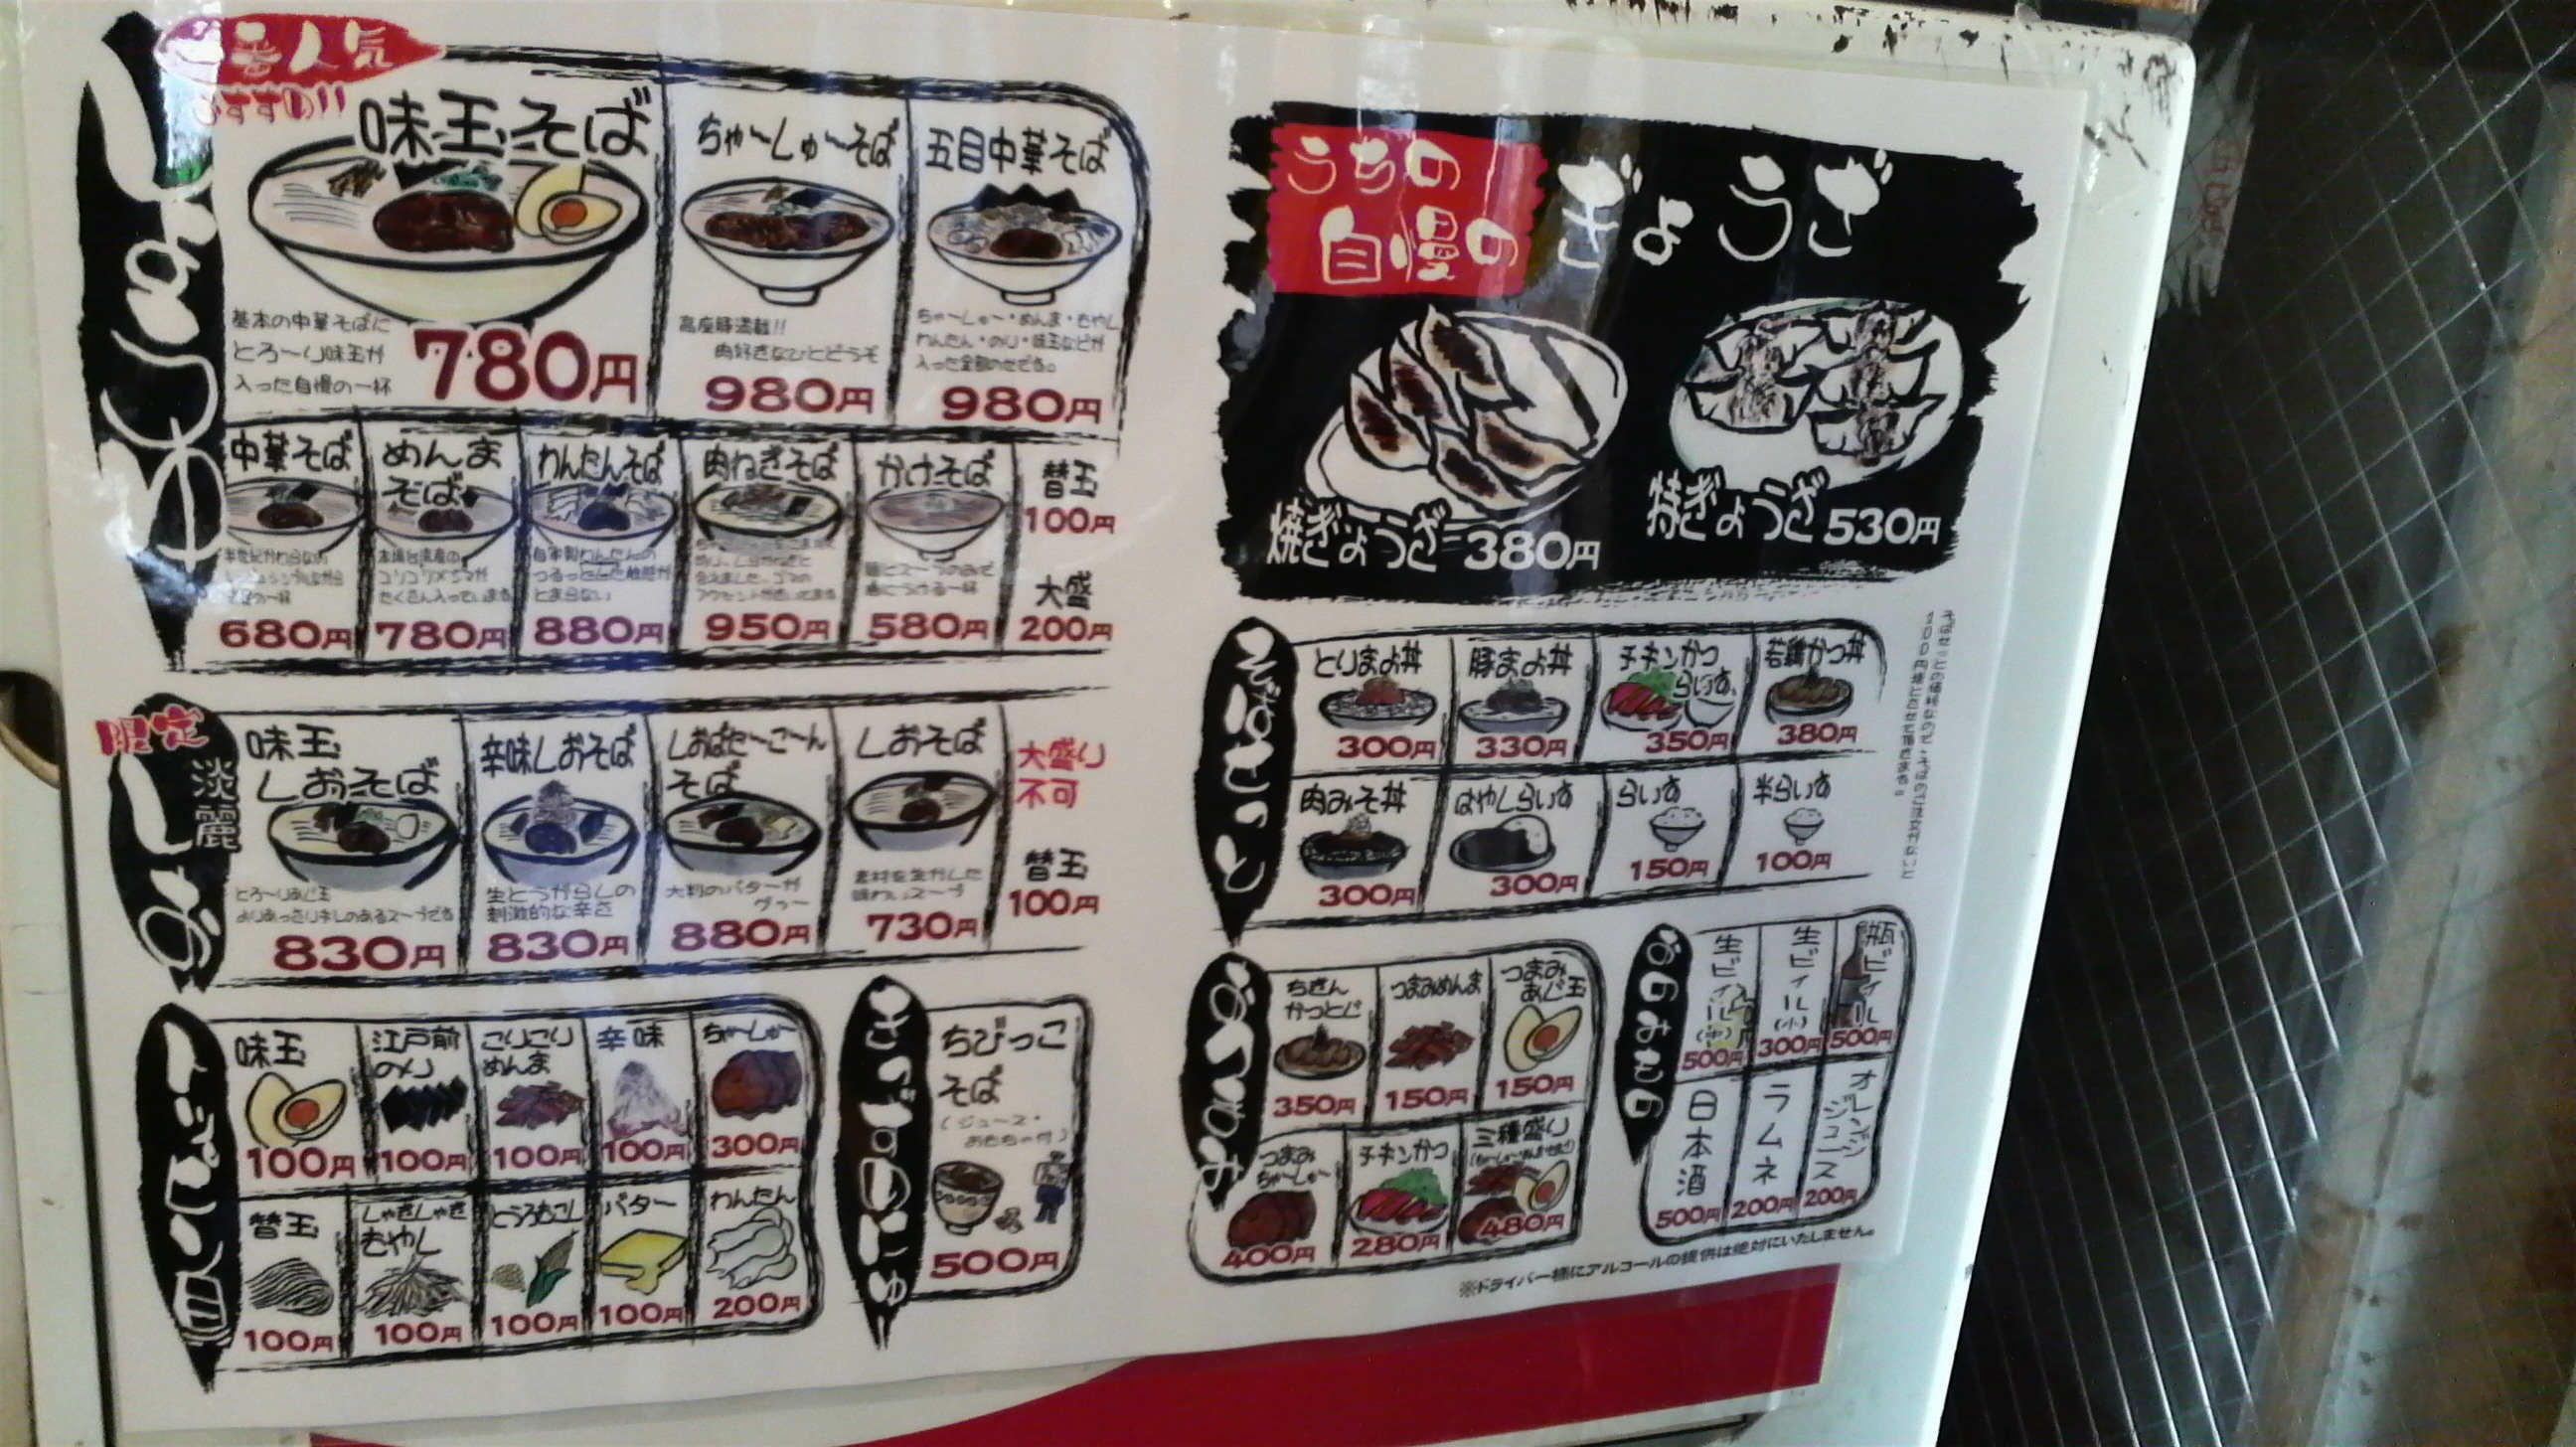 一番人気
おすすめ!!
味玉そば
基本の中華そばに
とろ〜り味玉が
入った自慢の一杯
780円
ちゃ〜しゅ〜そば
高座豚満載!!
肉好きなひとどうぞ
980円
五目中華そば
ちゃ〜しゅ〜・めんま・もやし
わんたん・のり・味玉などが
入った全部のせです。
980円
中華そば
680円
めんま
そば
コリコリメンマが
たくさん入っています
780円
わんたんそば
自家製わんたんの
つるっとした触感が
とまらない
880円
肉ねぎそば
950円
かけそば
580円
替玉
100円
大盛
200円
限定
淡麗
しお
味玉
しおそば
とろ〜りあじ玉
830円
辛味しおそば
生とうがらしの
刺激的な辛さ
830円
しおばた〜こ〜ん
そば
大判のバターが
880円
しおそば
素材を生かした
味わいスープ
730円
大盛り
不可
替玉
100円
とっぴんぐ
味玉
100円
江戸前
のり
100円
こりこり
めんま
100円
辛味
100円
ちゃ〜しゅ〜
300円
替玉
100円
しゃきしゃき
もやし
100円
とうろもこし
100円
バター
100円
わんたん
200円
きっずめにゅ
ちびっこ
そば
(ジュース・
おもちゃ付)
500円
うちの
自慢の
ぎょうざ
焼ぎょうざ 380円
特ぎょうざ 530円
とりまよ丼
300円
豚まよ丼
330円
チキンかつ
らいす
350円
若鶏かつ丼
380円
肉みそ丼
300円
はやしらいす
300円
らいす
150円
半らいす
100円
おつまみ
ちきん
かつとじ
350円
つまみめんま
150円
つまみ
あじ玉
150円
つまみ
ちゃ〜しゅ〜
400円
チキンかつ
280円
三種盛り
480円
生ビィール(中)
500円
生ビィール(小)
300円
瓶ビィール
500円
日本酒
500円
ラムネ
200円
オレンジ
ジュース
200円
※ドライバー様にアルコールの提供は絶対にいたしません。